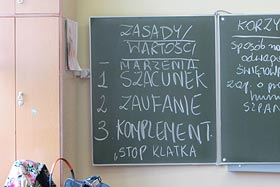 ZASADY/
WARTOŚCI
MARZENIA
1 SZACUNEK
2 ZAUFANIE
3 KOMPLEMENT
STOP KLATKA
KORZY
Sposób na
ŚWIĘTOW
SZPAN